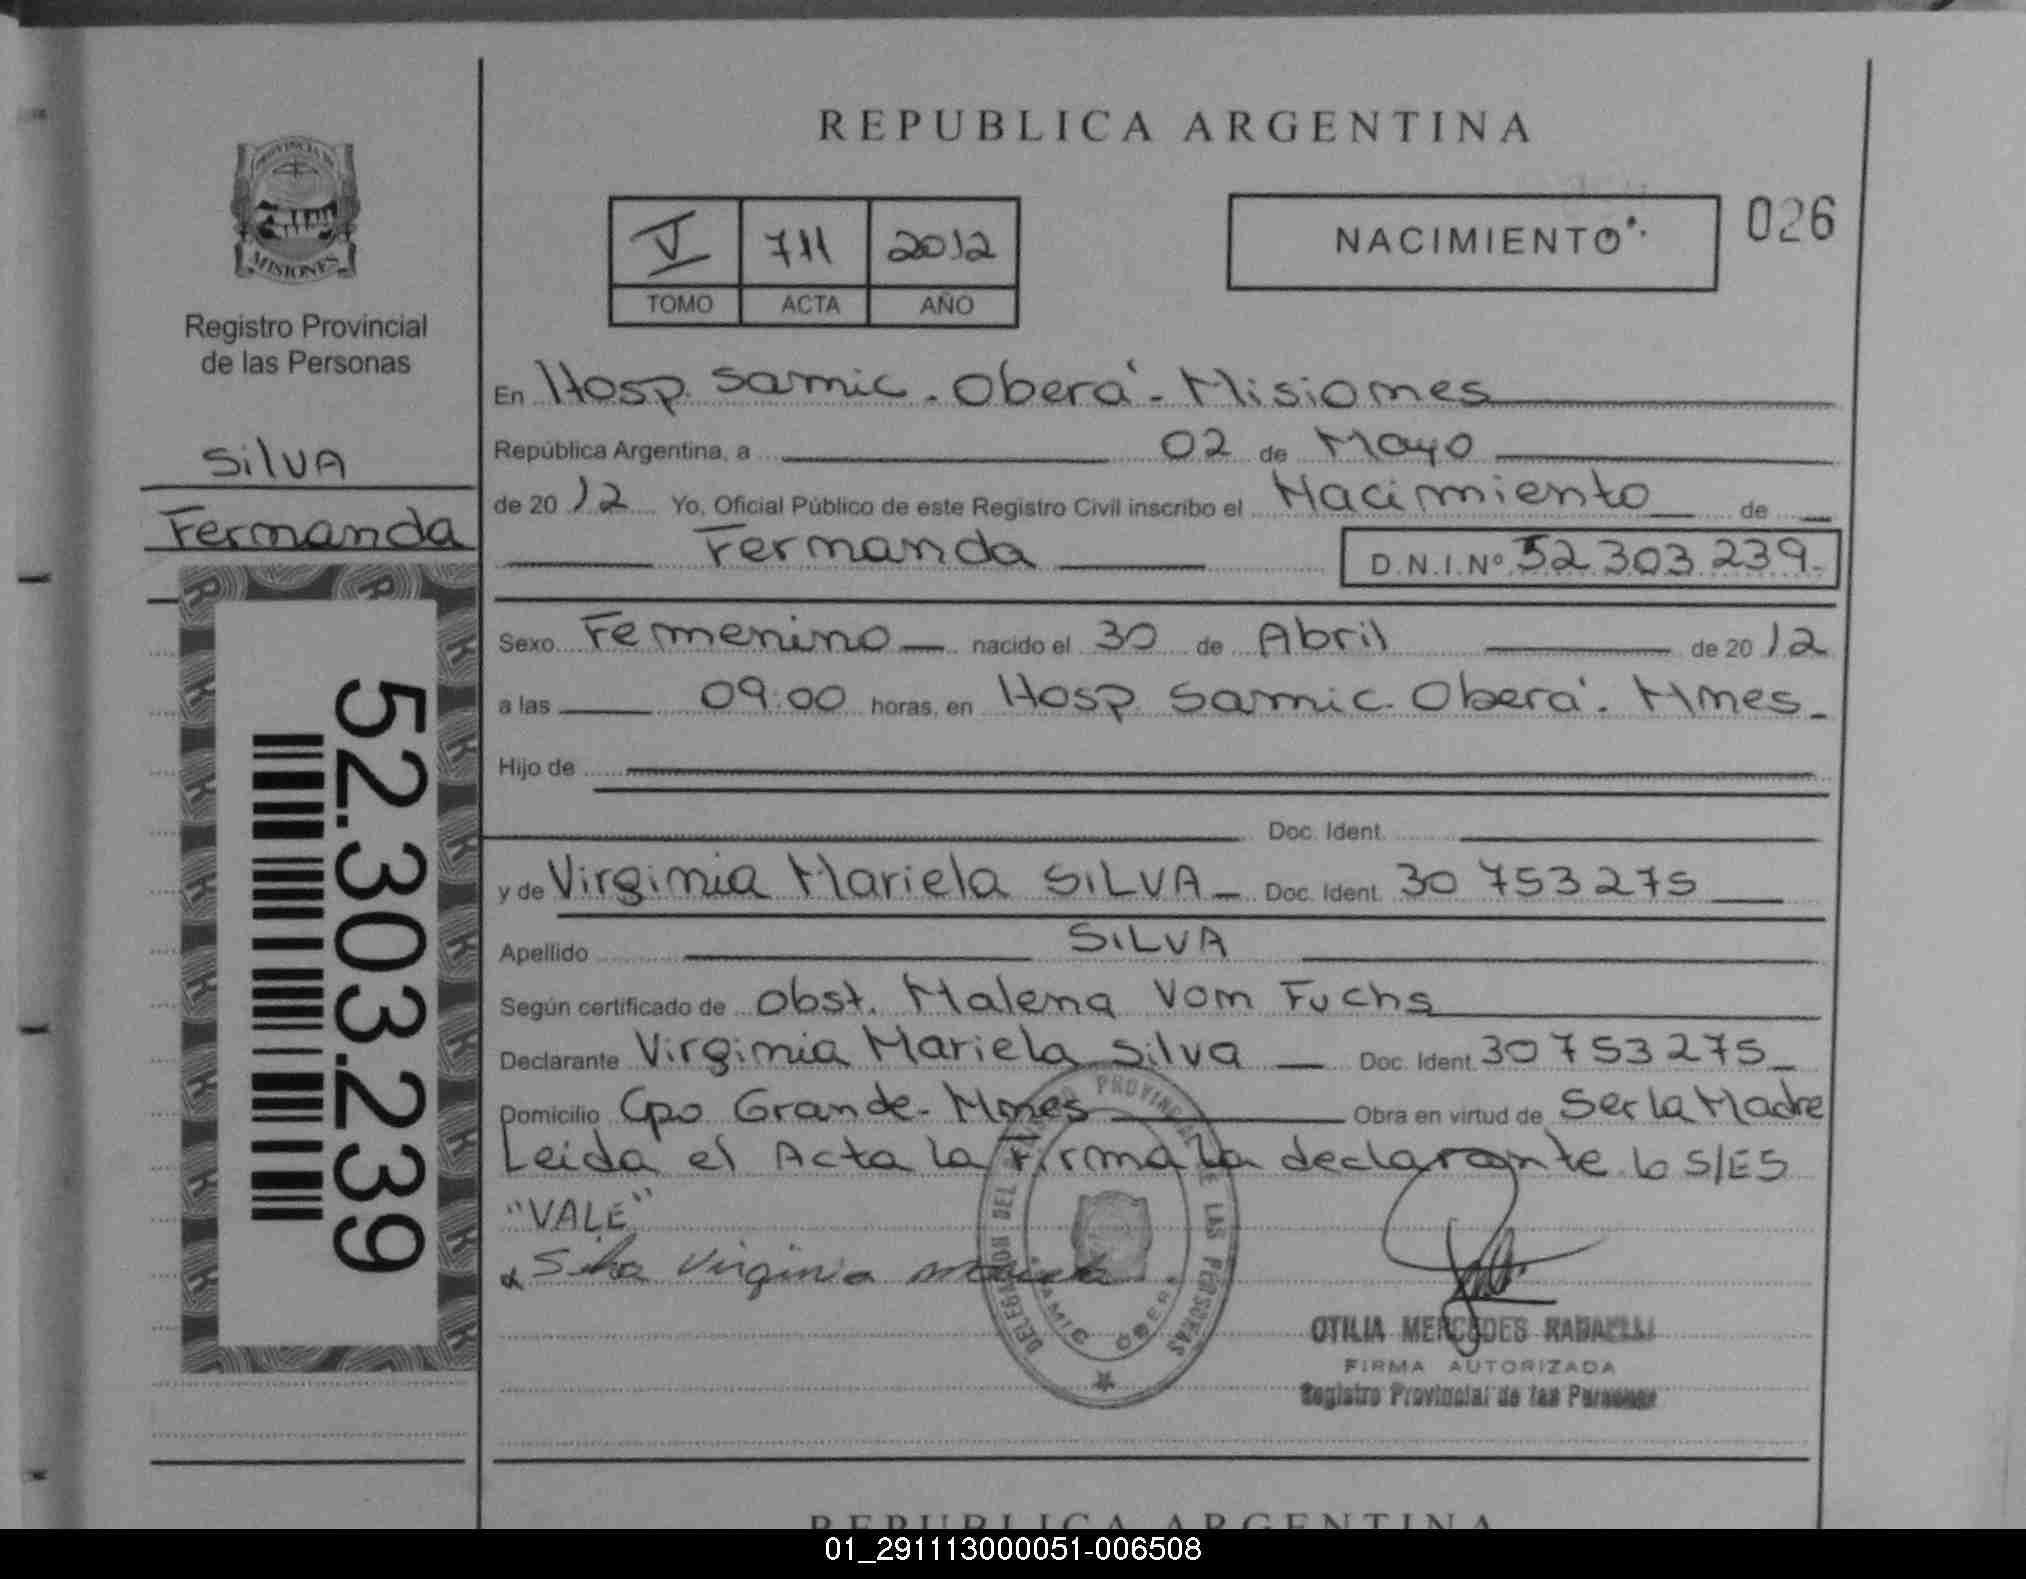 REPUBLICA ARGENTINA
PROVINCIA DE
MISIONES
Registro Provincial
de las Personas
SILVA
Fernanda
52.303.239
V 711 2012
TOMO ACTA AÑO
NACIMIENTO
026
En Hosp. Samic. Oberá - Misiones
República Argentina, a 02 de Mayo
de 2012 Yo, Oficial Público de este Registro Civil inscribo el Nacimiento de
Fernanda D.N.I.Nº 52.303.239.
Sexo Femenino nacido el 30 de Abril de 2012
a las 09:00 horas, en Hosp. Samic. Oberá. Mnes.
Hijo de
Doc. Ident.
y de Virginia Mariela SILVA Doc. Ident. 30 753 275
Apellido SILVA
Según certificado de Obst. Malena Von Fuchs
Declarante Virginia Mariela Silva Doc. Ident. 30 753 275
Domicilio Cpo Grande. Mnes Obra en virtud de Ser la Madre
Leida el Acta la Firma la declarante lo S/ES
"VALE"
Silva Virginia Mariela
PROVINCIAL DE LAS PERSONAS
SAMIC OBERA
OTILIA MERCEDES
FIRMA AUTORIZADA
Registro Provincial de las Personas
REPUBLICA ARGENTINA
01_291113000051-006508